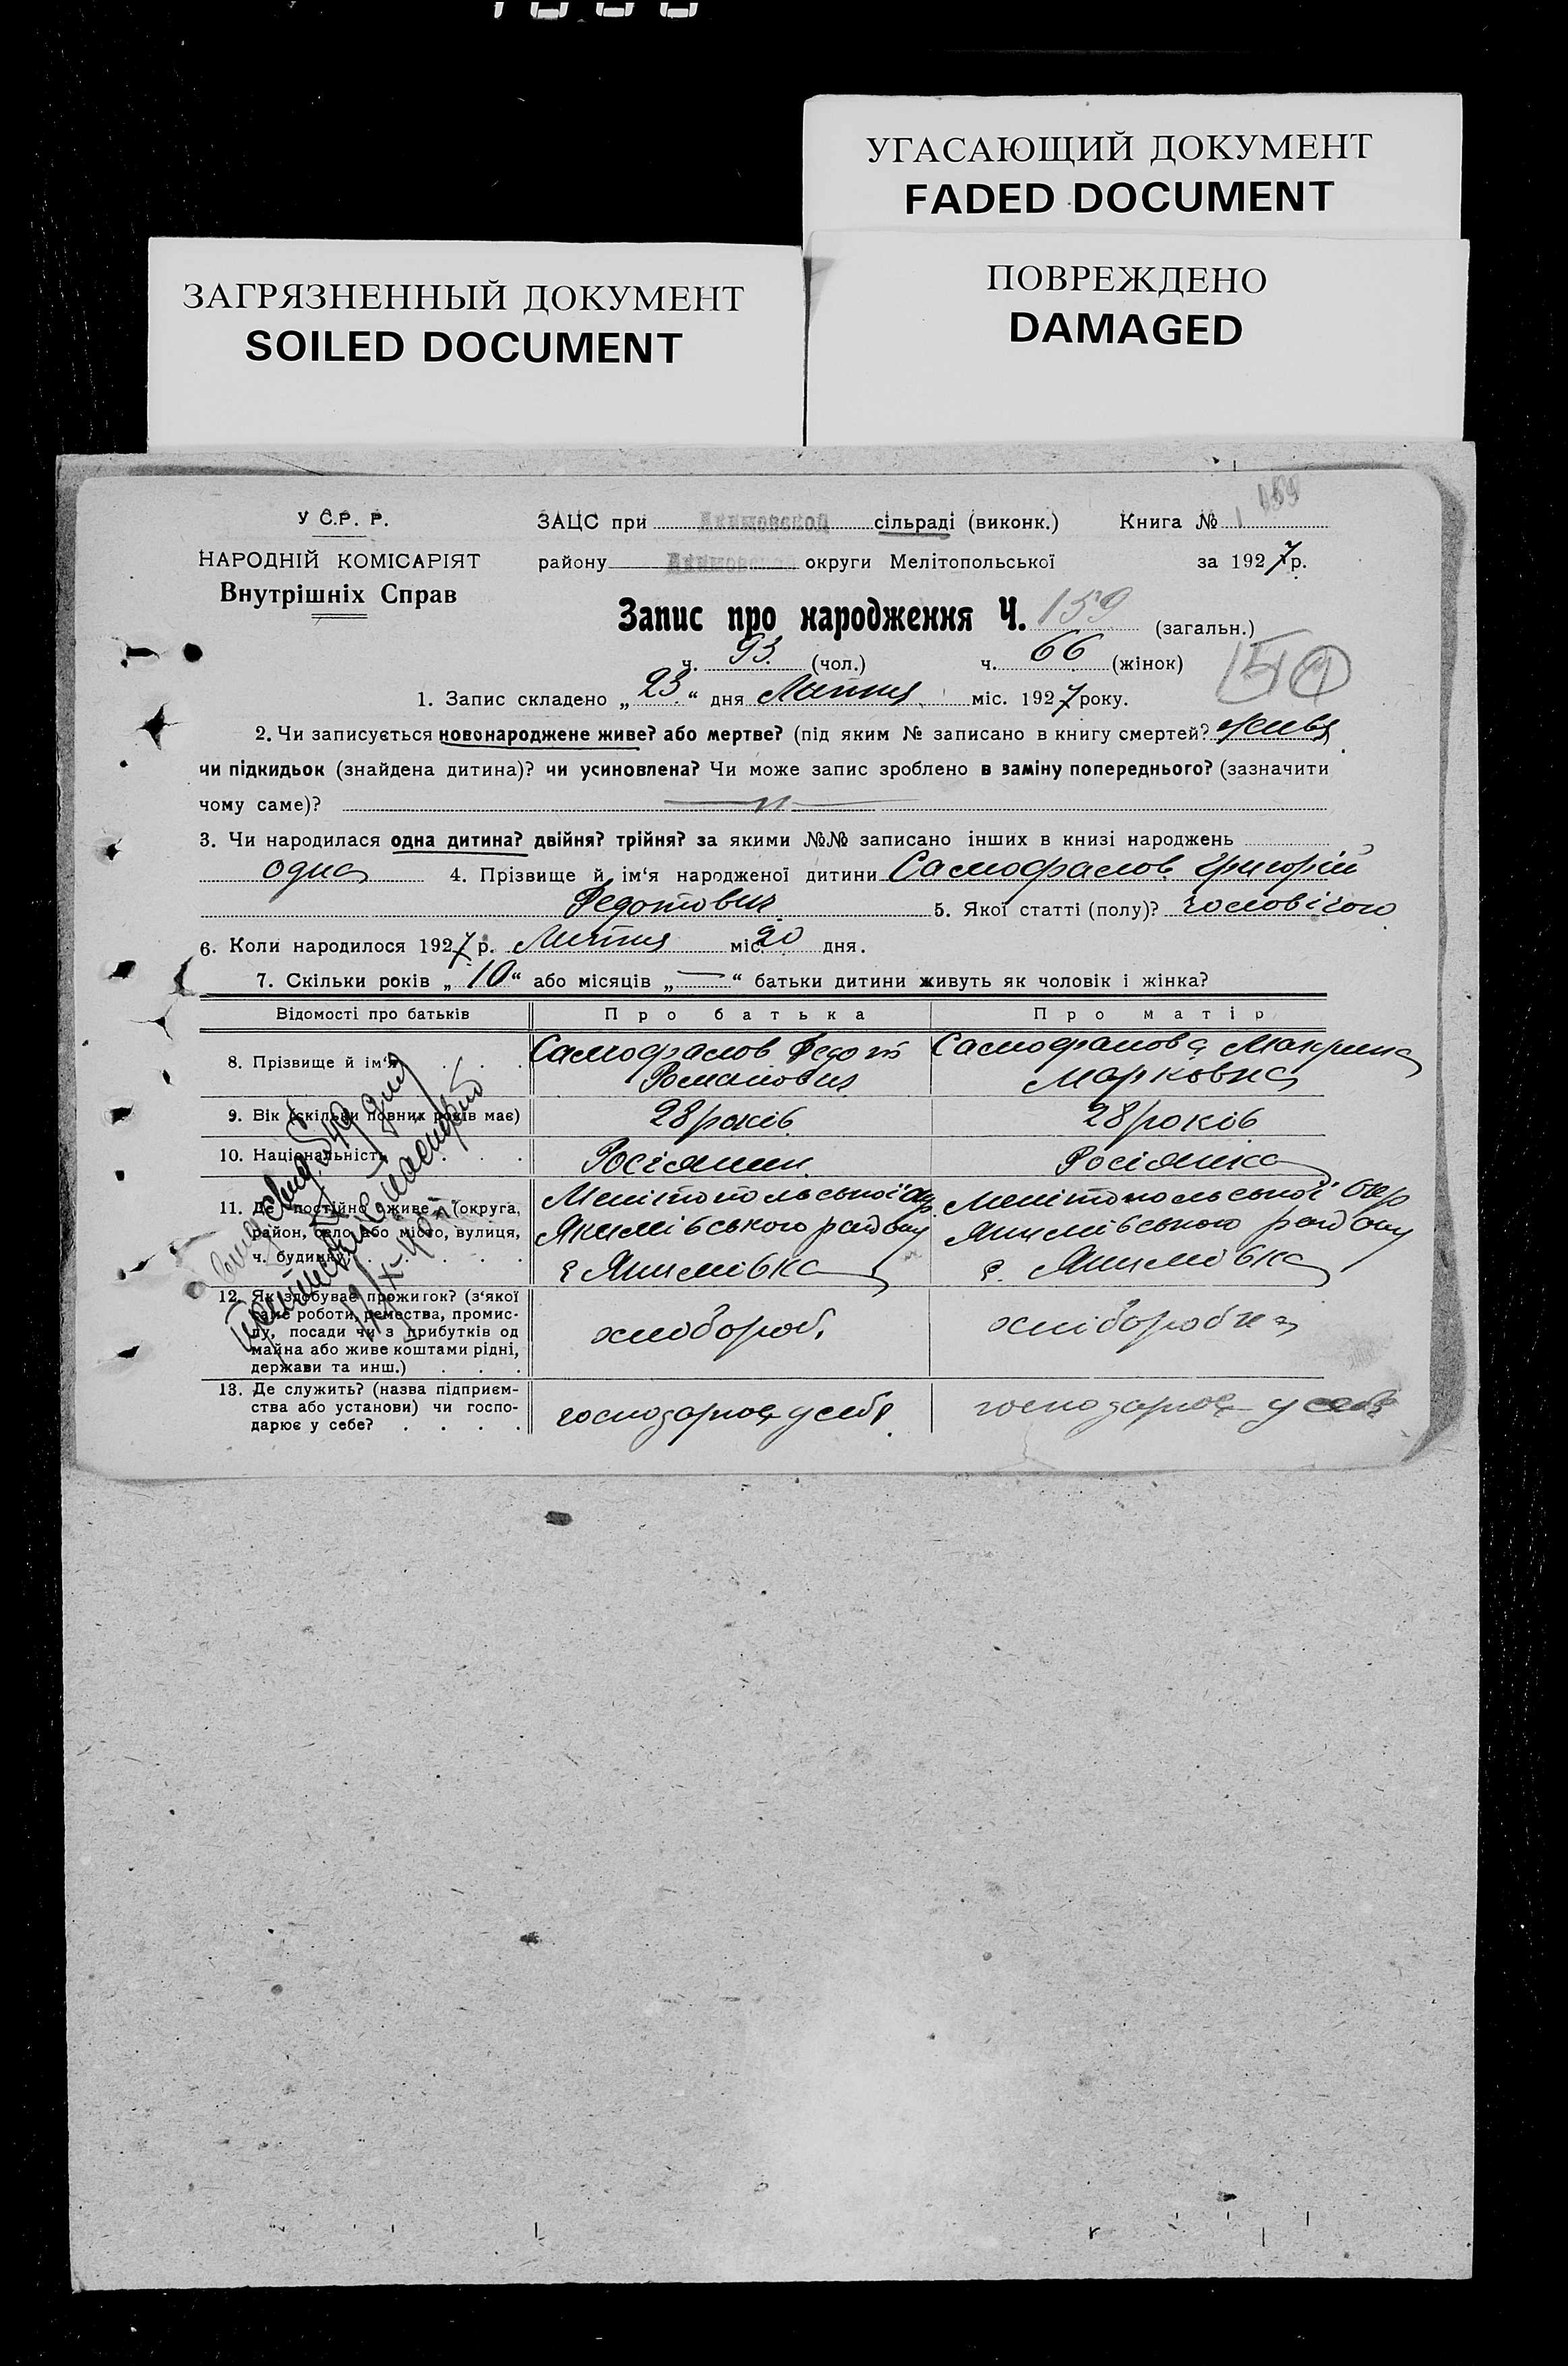 УГАСАЮЩИЙ ДОКУМЕНТ
FADED DOCUMENT
ЗАГРЯЗНЕННЫЙ ДОКУМЕНТ
SOILED DOCUMENT
ПОВРЕЖДЕНО
DAMAGED
У С.Р. Р.
НАРОДНІЙ КОМІСАРІЯТ
Внутрішніх Справ
ЗАЦС при Акимовской сільраді (виконк.) Книга № 159
району Акимовской округи Мелітопольської за 1927 р.
Запис про народження Ч. 159 (загальн.)
ч. 93 (чол.) ч. 66 (жінок)
1. Запис складено „ 23 “ дня Липня міс. 1927 року.
2. Чи записується новонароджене живе? або мертве? (під яким № записано в книгу смертей?
чи підкидьок (знайдена дитина)? чи усиновлена? Чи може запис зроблено в заміну попереднього? (зазначити
чому саме)?
3. Чи народилася одна дитина? двійня? трійня? за якими №№ записано інших в книзі народжень
одна 4. Прізвище й ім'я народженої дитини Самофалов Григорій
Федотович 5. Якої статті (полу)? чоловічого
6. Коли народилося 1927 р. Липня міс. 20 дня.
7. Скільки років „ 10 “ або місяців „ — “ батьки дитини живуть як чоловік і жінка?
Відомості про батьків Про батька Про матір
8. Прізвище й ім'я . . . Самофалов Федот Самофалова Макрина
Романович Марковна
9. Вік (скільки повних років має) 28 років 28 років
10. Національність . . . Росіянин Росіянка
11. Де постійно живе (округа, район, село або місто, вулиця, ч. будинку) . . .
Мелітопольської окр. Мелітопольської окр
Якимівського району Якимівського району
с Якимівка с. Якимовка
12. Як здобуває прожиток? (з'якої
саме роботи, ремества, промис-
лу, посади чи з прибутків од
майна або живе коштами рідні,
держави та инш.) . . .
хлібороб. хліборобка
13. Де служить? (назва підприєм-
ства або установи) чи госпо-
дарює у себе? . . . .
господарює у себе господарює у себе